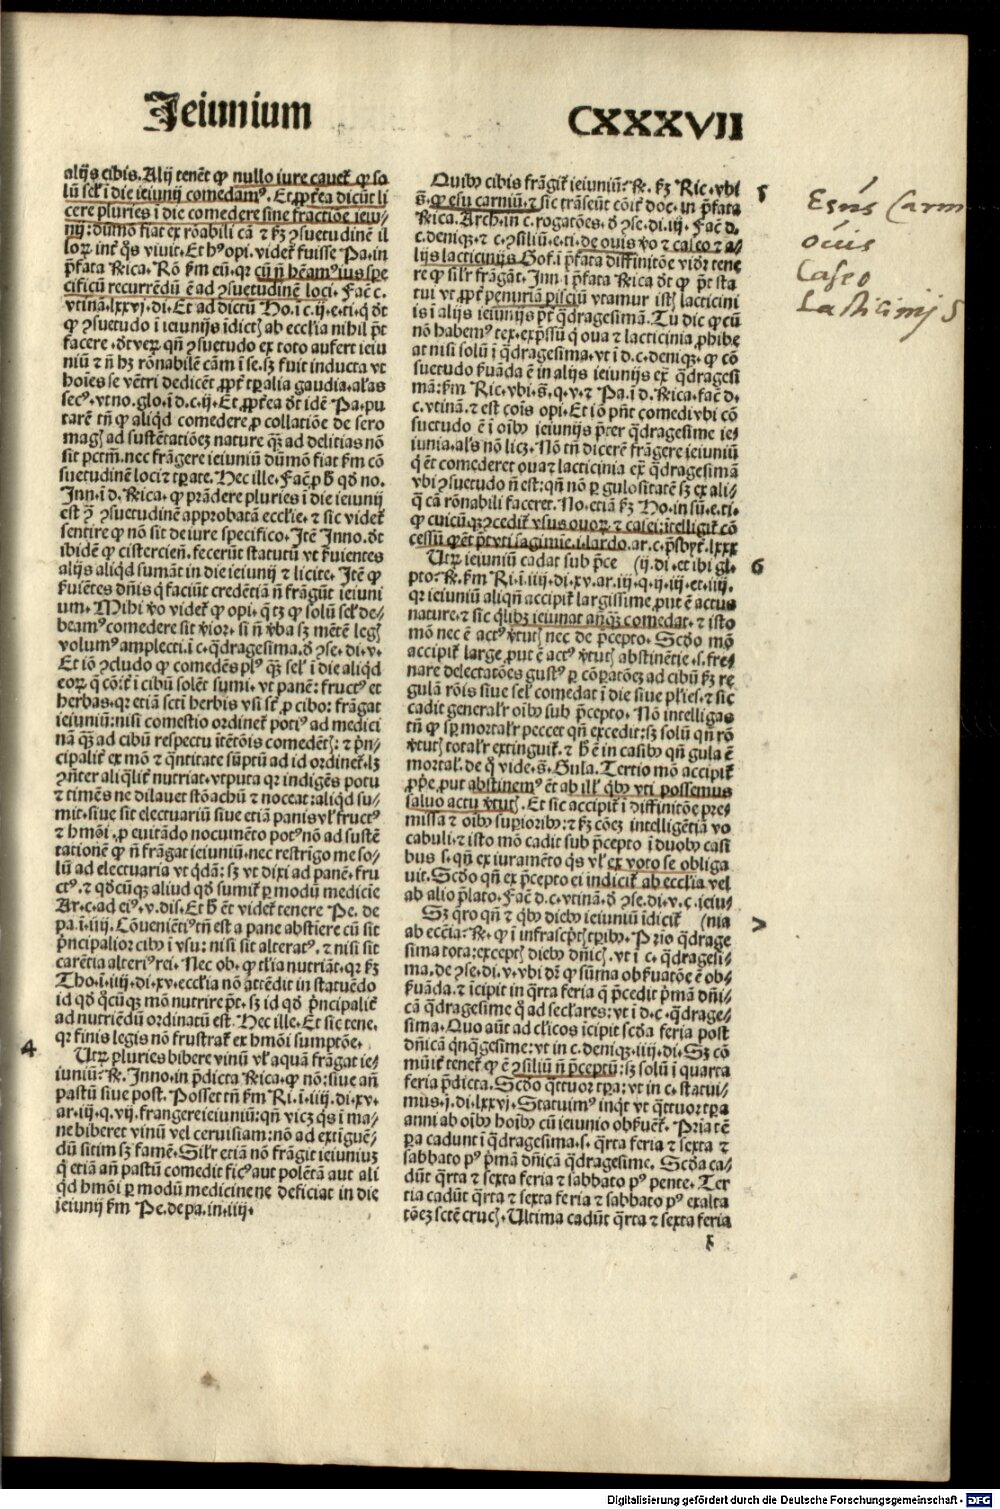 Jeiunium
CXXXVII
alijs cibis. Alij tenẽt ꝙ nullo iure cauet᷑ ꝙ so
lũ sel’ ĩ die ieiunij comedam⁹. Et ꝓpt᷑ea dicũt li
cere pluries ĩ die comedere sine fractiõe ieiu⸗
nij: dũmõ fiat ex rõnabili cã ⁊ ẜm ꝯsuetudinẽ il
loꝝ int᷑ q̃s viuit. Et h⁹ opi. videt᷑ fuisse Pa. in
p̃fata Rica. Rõ ẜm eũ. qꝛ cũ ñ hẽam⁹ ius spe
cificũ recurrẽdũ ẽ ad ꝯsuetudinẽ loci. Fac̃ c.
vtinã. lxxvi. di. Et ad dictũ Ho. ĩ c. ij. e. ti. q̃ dt̃
ꝙ ꝯsuetudo ĩ ieiunijs ĩdict̃ ab eccl’ia nihil p̃t
facere. dt̃ veꝝ. qñ ꝯsuetudo ex toto aufert ieiu
niũ ⁊ ñ hꝫ rõnabilẽ cãm ĩ se. sꝫ fuit inducta vt
hoĩes se vẽtri dedicẽt ꝓpt᷑ tp̃alia gaudia. al’as
sec⁹. vt no. glo. ĩ d. c. ij. Et ꝓpt᷑ea dt̃ idẽ Pa. pu
tarẽ tñ ꝙ aliqd̃ comedere ꝓ collatiõe de sero
mag̃ ad sustẽtatiõeꝫ nature q̃ꝫ ad delitias nõ
sit pctm̃. nec frãgere ieiuniũ dũmõ fiat ẜm cõ
suetudinẽ loci ⁊ tp̃ate. Hec ille. Fac̃ ꝓ h̃ qd̃ no.
Inn. ĩ d. Rica. ꝙ prãdere pluries ĩ die ieiunij
est ꝯ̃ ꝯsuetudinẽ approbatã eccl’ie. ⁊ sic videt᷑
sentire ꝙ nõ sit de iure specifico. Itẽ Inno. dt̃
ibidẽ ꝙ cistercieñ. fecerũt statutũ vt ẜuientes
alijs aliqd̃ sumãt in die ieiunij ⁊ licite. Itẽ ꝙ
ẜuiẽtes dñis q̃ faciũt credẽtiã ñ frãgũt ieiuni
um. Mihi v̾o videt᷑ ꝙ opi. q̃ tꝫ ꝙ solũ sel’ de⸗
beam⁹ comedere sit v̾ior. si ñ v̾ba sꝫ mẽtẽ leg̃
volum⁹ amplecti. ĩ c. q̃dragesima. đ ꝯse. di. v.
Et iõ ꝯcludo ꝙ comedẽs pl⁹ q̃ꝫ sel’ ĩ die aliqd̃
eoꝝ q̃ cõit᷑ ĩ cibũ solẽt sumi. vt panẽ: fruct⁹ et
herbas. qꝛ etiã scti herbis vsi sũt ꝓ cibo: frãgat
ieiuniũ: nisi comestio ordinet᷑ poti⁹ ad medici
nã q̃ꝫ ad cibũ respectu ĩtẽtõis comedẽt̃: ⁊ p̃n⸗
cipalit᷑ ex mõ ⁊ q̃ntitate sũptũ ad id ordinet᷑. lꝫ
ꝯñter aliq̃lit᷑ nutriat. vtputa qꝛ indigẽs potu
⁊ timẽs ne dilauet stõachũ ⁊ noceat: aliqd̃ su⸗
mit. siue sit electuariũ siue etiã panis vl’ fruct⁹
⁊ hmõi. ꝓ euitãdo nocumẽto pot⁹ nõ ad sustẽ
tationẽ ꝙ ñ frãgat ieiuniũ. nec restrĩgo me so⸗
lũ ad electuaria vt q̃dã: sꝫ vt dixi ad panẽ. fru
ct⁹. ⁊ qd̃cũqꝫ aliud qd̃ sumit᷑ ꝑ modũ medicie
Ar. c. ad ei⁹. v. dis. Et h̃ ẽt videt᷑ tenere Pe. de
pa. ĩ. iiij. Cõueniẽti⁹ tñ est a pane abstĩere cũ sit
p̃ncipalior cib⁹ ĩ vsu: nisi sit alterat⁹. ⁊ nisi sit
carẽtia alteri⁹ rei. Nec ob. ꝙ tl’ia nutriãt. qꝛ ẜm
Tho. ĩ. iiij. di. xv. eccl’ia nõ att̃edit in statuẽdo
id qd̃ q̃cũqꝫ mõ nutrire p̃t. sꝫ id qd̃ p̃ncipalit᷑
ad nutriẽdũ ordinatũ est. Hec ille. Et sic tene.
qꝛ finis legis nõ frustrat᷑ ex hmõi sumptõe.
4
Utꝝ pluries bibere vinũ vl’ aquã frãgat ie⸗
iuniũ: ℟. Inno. in p̃dicta Rica. ꝙ nõ: siue añ
pastũ siue post. Posset tñ ẜm Ri. ĩ. iiij. di. xv.
ar. iij. q. vij. frangere ieiuniũ: qñ vicꝫ q̃s ĩ ma⸗
ne biberet vinũ vel ceruisiam: nõ ad extĩguẽ⸗
dũ sitim sꝫ famẽ. Sil’r etiã nõ frãgit ieiuniuꝫ
q̃ etiã añ pastũ comedit fic⁹ aut polẽtã aut ali
qd̃ hmõi ꝑ modũ medicine ne deficiat in die
ieiunij ẜm Pe. de pa. in. iiij.
Quibꝰ cibis frãgit᷑ ieiuniũ: ℟. ẜm Ric. vbi
s̃. ꝙ esu carniũ. ⁊ sic trãseũt cõit᷑ doc. in p̃fata
Rica. Arch. in c. rogatões. đ ꝯse. di. iij. Fac̃ d.
c. deniqꝫ. ⁊ c. ꝯsiliũ. e. ti. de ouis v̾o ⁊ caseo ⁊ a⸗
lijs lacticinijs Gof. ĩ p̃fata diffinitõe vider̃ tene
re ꝙ sil’r frãgãt. Inn. ĩ p̃fata Rica dt̃ ꝙ p̃t sta
tui vt ꝓpt᷑ penuriã pisciũ vtamur ist̃ lacticini
is ĩ alijs ieiunijs p̃t q̃dragesimã. Tu dic ꝙ cũ
nõ habem⁹ tex. exp̃ssũ q̃ oua ⁊ lacticinia ꝓhibe
at nisi solũ ĩ q̃dragesima. vt ĩ d. c. deniqꝫ. ꝙ cõ
suetudo ẜuãda ẽ in alijs ieiunijs ext᷑ q̃dragesi
mã: ẜm Ric. vbi. s̃. q. v. ⁊ Pa. ĩ d. Rica. fac̃ d.
c. vtinã. ⁊ est cõis opi. Et iõ pñt comedi vbi cõ
suetudo ẽ ĩ oĩbꝰ ieiunijs p̃ter q̃dragesime ie⸗
iunia. al’s nõ licꝫ. Nõ tñ dicerẽ frãgere ieiuniũ
q̃ ẽt comederet oua ⁊ lacticinia ext᷑ q̃dragesimã
vbi ꝯsuetudo ñ est: qñ nõ ꝑ gulositatẽ sꝫ ex ali⸗
q̃ cã rõnabili faceret. No. etiã ẜm Ho. in sũ. e. ti.
ꝙ cuicũqꝫ ꝯcedit᷑ vsus ouoꝝ ⁊ casei: ĩtelligit᷑ cõ
cessũ ꝙ ẽt p̃t vti sagimie. i. lardo. ar. c. p̃sbyt᷑. lxxx
Utꝝ ieiuniũ cadat sub p̃ce (ij. di. et ibi gl.
pto: ℟. ẜm Ri. ĩ. iiij. di. xv. ar. iij. q. ij. iij. et. iiij.
qꝛ ieiuniũ aliqñ accipit᷑ largissime, ꝓut ẽ actus
nature. ⁊ sic q̃libꝫ ieiunat añq̃ꝫ comedat. ⁊ isto
mõ nec ẽ act⁹ v̾tut̃ nec de p̃cepto. Scđo mõ
accipit᷑ large, ꝓut ẽ act⁹ v̾tut̃ abstinẽtie. s. fre⸗
nare delectatões gust⁹ ꝑ cõꝑatõeꝫ ad cibũ ẜm re
gulã rõis siue sel’ comedat ĩ die siue pl’ies. ⁊ sic
cadit general’r oĩbꝰ sub p̃cepto. Nõ intelligas
tñ ꝙ sp̃ mortal’r peccet qñ excedit: sꝫ solũ qñ rõ
v̾tut̃ total’r extinguit᷑. ⁊ h̃ ẽ in casibꝰ qñ gula ẽ
mortal’. de q̃ vide. s̃. Gula. Tertio mõ accipit᷑
ꝓp̃e, put abstinem⁹ ẽt ab ill’ q̃bꝰ vti possemus
saluo actu v̾tut̃. Et sic accipit᷑ ĩ diffinitõe pre⸗
missa ⁊ oĩbꝰ sup̃ioribꝰ: ⁊ ẜm cõeꝫ intelligẽtiã vo
cabuli. ⁊ isto mõ cadit sub p̃cepto ĩ duobꝰ casi
bus s. qñ ex iuramẽto q̃s vl’ ex voto se obliga
uit. Scđo qñ ex p̃cepto ei indicit᷑ ab eccl’ia vel
ab alio p̃lato. Fac̃ d. c. vtinã. đ ꝯse. di. v. c. ieiu⸗
Sꝫ q̃ro qñ ⁊ q̃bꝰ diebꝰ ieiuniũ ĩdicit᷑ (nia
ab ecc̃ia: ℟. ꝙ ĩ infrascp̃t̃ tp̃ibꝰ. Prĩo q̃drage
sima tota: except̃ diebꝰ dñic̃. vt ĩ c. q̃dragesi⸗
ma. de ꝯse. di. v. vbi dr̃ ꝙ sũma obẜuatõe ẽ ob⸗
ẜuãda. ⁊ ĩcipit in q̃rta feria q̃ p̃cedit p̃mã dñi⸗
cã q̃dragesime q̃ ad sec̾lares: vt ĩ d. c. q̃drage⸗
sima. Quo aũt ad cl’icos ĩcipit scđa feria post
dñicã q̃nq̃gesime: vt in c. deniqꝫ. iiij. di. Sꝫ cõ
mũit᷑ tenet᷑ ꝙ ẽ ꝯsiliũ ñ p̃ceptũ: sꝫ solũ ĩ quarta
feria p̃dicta. Scđo q̃ttuor tp̃a: vt in c. statui⸗
mus. j. di. lxxvj. Statuim⁹ inq̃t vt q̃ttuor tp̃a
anni ab oĩbꝰ hoĩbꝰ cũ ieiunio obẜuẽt᷑. Pria tẽ
p̃a cadunt ĩ q̃dragesima. s. q̃rta feria ⁊ sexta ⁊
sabbato p⁹ p̃mã dñicã q̃dragesime. Scđa ca⸗
dũt q̃rta ⁊ sexta feria ⁊ sabbato p⁹ pente. Ter
tia cadũt q̃rta ⁊ sexta feria ⁊ sabbato p⁹ exalta
tõeꝫ sctẽ cruc̃. Ultima cadũt q̃rta ⁊ sexta feria
5
6
7
Esus Carni
ovis
Caseo
Lacticinijs
Digitalisierung gefördert durch die Deutsche Forschungsgemeinschaft - DFG